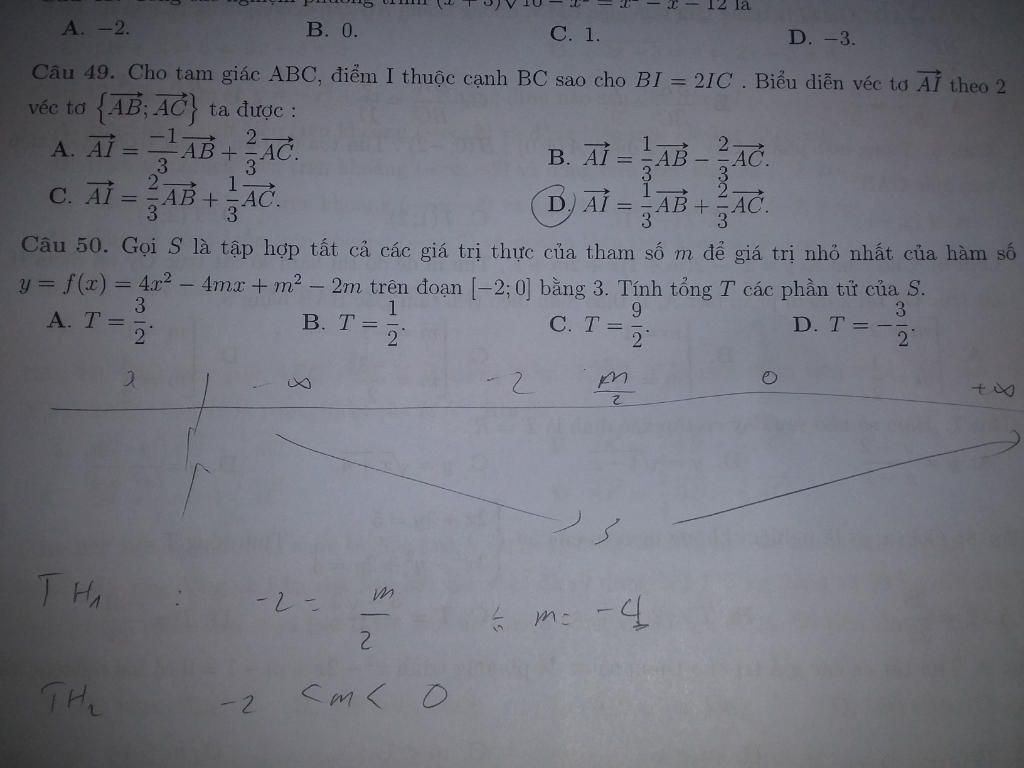 (x + 3)√10 − x² = x² − x − 12 là
A. −2. B. 0. C. 1. D. −3.
Câu 49. Cho tam giác ABC, điểm I thuộc cạnh BC sao cho BI = 2IC . Biểu diễn véc tơ \overrightarrow{AI} theo 2
véc tơ {\overrightarrow{AB}; \overrightarrow{AC}} ta được :
A. \overrightarrow{AI} = \frac{-1}{3}\overrightarrow{AB} + \frac{2}{3}\overrightarrow{AC}. B. \overrightarrow{AI} = \frac{1}{3}\overrightarrow{AB} − \frac{2}{3}\overrightarrow{AC}.
C. \overrightarrow{AI} = \frac{2}{3}\overrightarrow{AB} + \frac{1}{3}\overrightarrow{AC}. D. \overrightarrow{AI} = \frac{1}{3}\overrightarrow{AB} + \frac{2}{3}\overrightarrow{AC}.
Câu 50. Gọi S là tập hợp tất cả các giá trị thực của tham số m để giá trị nhỏ nhất của hàm số
y = f(x) = 4x² − 4mx + m² − 2m trên đoạn [−2; 0] bằng 3. Tính tổng T các phần tử của S.
A. T = \frac{3}{2}. B. T = \frac{1}{2}. C. T = \frac{9}{2}. D. T = −\frac{3}{2}.
x − ∞ −2 \frac{m}{2} 0 +∞
TH₁ : −2 = \frac{m}{2} m = −4
TH₂ −2 < m < 0